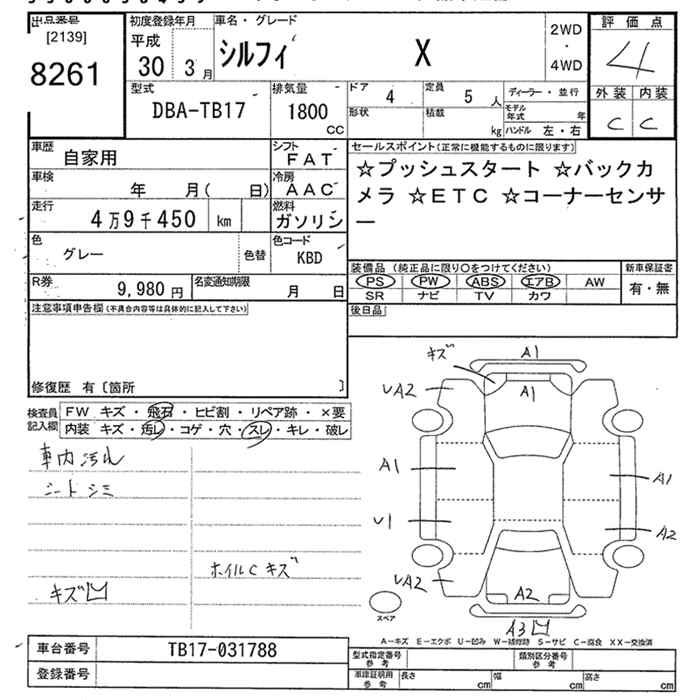 出品番号
[2139]
8261
初度登録年月
平成
30 3月
車名・グレード
シルフィ X
2WD
・
4WD
評価点
4
外装 内装
C C
型式
DBA-TB17
排気量
1800
CC
ドア 4
定員 5 人
形状
積載 kg
ディーラー・並行
モデル年式 年
ハンドル 左・右
車歴
自家用
シフト
FAT
車検
年 月( 日)
冷房
AAC
走行
4万9千450 km
燃料
ガソリン
色
グレー
色替
色コード
KBD
R券
9,980円
名変通知期限
月 日
セールスポイント(正常に機能するものに限ります)
☆プッシュスタート ☆バックカ
メラ ☆ETC ☆コーナーセンサ
ー
装備品 (純正品に限り○をつけてください)
PS PW ABS エアB AW
SR ナビ TV カワ
新車保証書
有・無
後日品
注意事項申告欄(不具合内容等は具体的に記入して下さい)
修復歴 有〔箇所 〕
検査員
記入欄
FW キズ・飛石・ヒビ割・リペア跡・×要
内装 キズ・汚レ・コゲ・穴・スレ・キレ・破レ
車内汚れ
シートシミ
ホイルCキズ
キズ凹
キズ
A1
A1
UA2
A1
A1
U1
A2
UA2
A2
A3凹
スペア
A-キズ E-エクボ U-凹み W-補修跡 S-サビ C-腐食 XX-交換済
車台番号
TB17-031788
登録番号
型式指定番号
参考
類別区分番号
参考
車庫証明用
参考
長さ cm
幅 cm
高さ cm